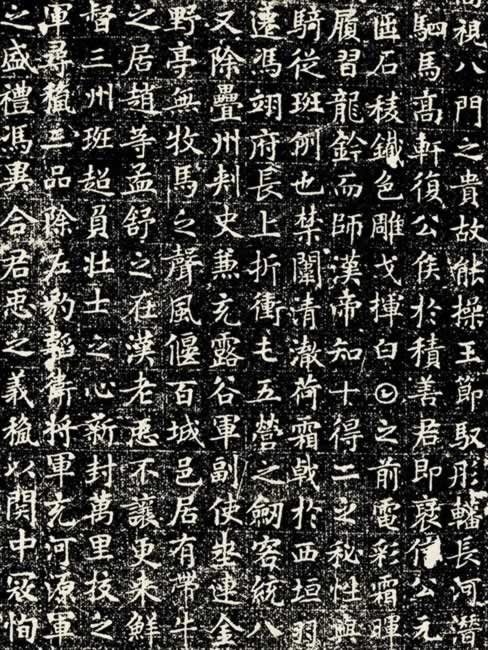 視八門之貴故能操玉節馭彤轓長河潛
駟馬高軒復公侯於積善君即袞信公元
匪石稜鐵色雕戈揮白𡆠之前電彩霜暉
履習龍鈐而師漢帝知十得二之秘性與
騎從班例也禁闌清澈荷霜戟於西垣羽
遷馮翊府長上折衝七五營之劒容統八
又除疊州刾史兼充露谷軍副使坐連金
野亭無牧馬之聲風偃百城邑居有帶牛
之居趙等孟舒之在漢老𢘑不讓更来鮮
督三州班超員壯士之心新封萬里投之
軍尋三品除左豹韜衛將軍充河源軍
之盛禮馮異合君𢘑之義以関中寇恂